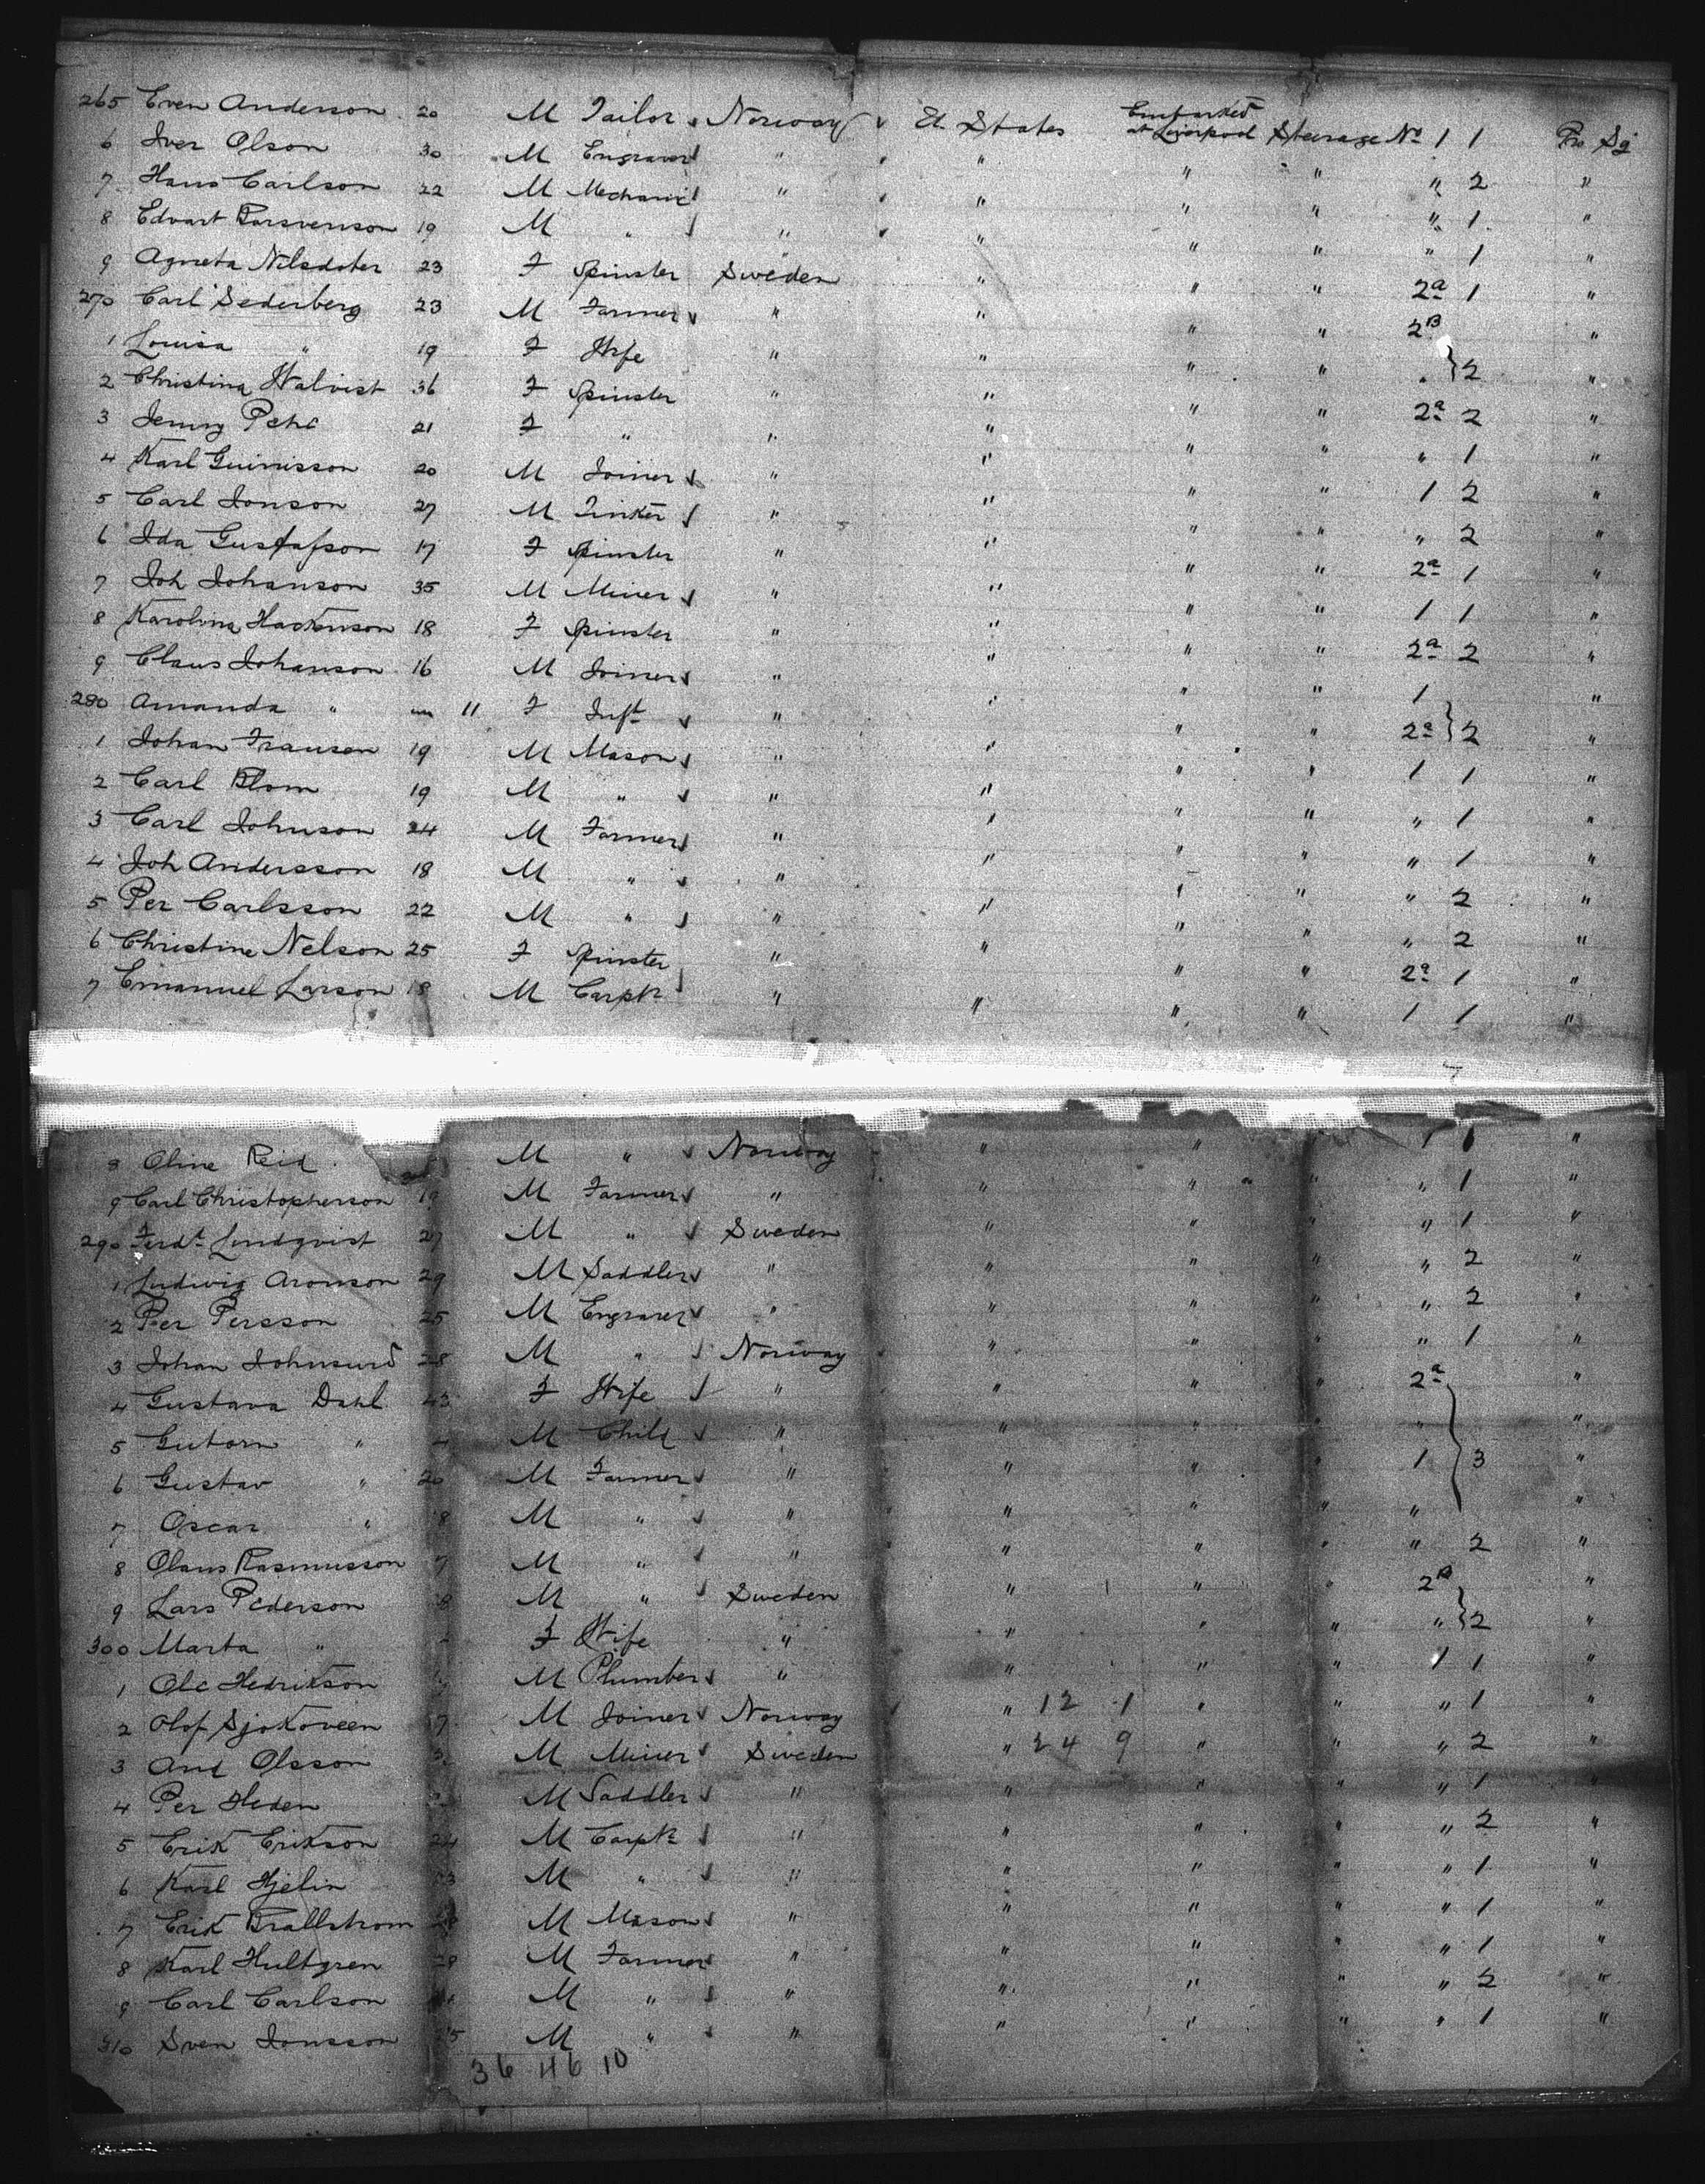 265 Even Anderson 20 M Tailor Norway U. States Embarked at Liverpool Steerage No 1 1 Pro Sg
6 Iver Olson 30 M Engraver " " " " " 2 "
7 Hans Carlson 22 M Mechanic " " " " " 1 "
8 Edvart 19 M " " " " " " 1 "
9 Agneta Nilsdoter 23 F Spinster Sweden " " " 2a 1 "
270 Carl Sederberg 23 M Farmer " " " " 2B "
1 Louisa " 19 F Wife " " " " " } 2 "
2 Christina Walvist 36 F Spinster " " " " 2a 2 "
3 Jenny 21 F " " " " " " 1 "
4 Karl 20 M Joiner " " " " 1 2 "
5 Carl Jonson 27 M Tinker " " " " " 2 "
6 Ida Gustafson 17 F Spinster " " " " 2a 1 "
7 Joh Johanson 35 M Miner " " " " 1 1 "
8 Karolina 18 F Spinster " " " " 2a 2 "
9 Claus Johanson 16 M Joiner " " " " 1 "
280 Amanda " 11 F Inft " " " " 2a } 2 "
1 Johan Fransen 19 M Mason " " " " 1 1 "
2 Carl Blom 19 M " " " " " " 1 "
3 Carl Johnson 24 M Farmer " " " " " 1 "
4 Joh Andersson 18 M " " " " " " 2 "
5 Per Carlsson 22 M " " " " " " 2 "
6 Christine Nelson 25 F Spinster " " " " 2a 1 "
7 Emanuel Larson 18 M Carptr " " " " 1 1 "
8 Oline Reid M " Norway " " 1 1 "
9 Carl Christopherson 19 M Farmer " " " " " 1 "
290 Ferdt Lindqvist 27 M " Sweden " " " " 1 "
1 Ludwig Aronson 29 M Saddler " " " " " 2 "
2 Per Persson 25 M Engraver " " " " " 2 "
3 Johan 28 M " Norway " " " " 1 "
4 Gustava Dahl 43 F Wife " " " " 2a "
5 Gutorm " M Child " " " " " "
6 Gustav " 20 M Farmer " " " " 1 } 3 "
7 Oscar " 18 M " " " " " " "
8 Olaus Rasmusson M " " " " " " 2 "
9 Lars Pederson M " Sweden " " " 2B "
300 Marta " F Wife " " " " " } 2 "
1 Ole Hedrikson M Plumber " " " " 1 1 "
2 Olof 17 M Joiner Norway " 12 1 " " " 1 "
3 And Olsson M Miner Sweden " 24 9 " " " 2 "
4 Per Heden M Saddler " " " " " 1 "
5 Erik Erikson 24 M Carptr " " " " " 2 "
6 Karl Hjelin 23 M " " " " " " 1 "
7 Erik 28 M Mason " " " " " 1 "
8 Karl Hultgren 28 M Farmer " " " " " 1 "
9 Carl Carlson M " " " " " " 2 "
310 Sven Jonsson 25 M " " " " " " 1 "
36 46 10